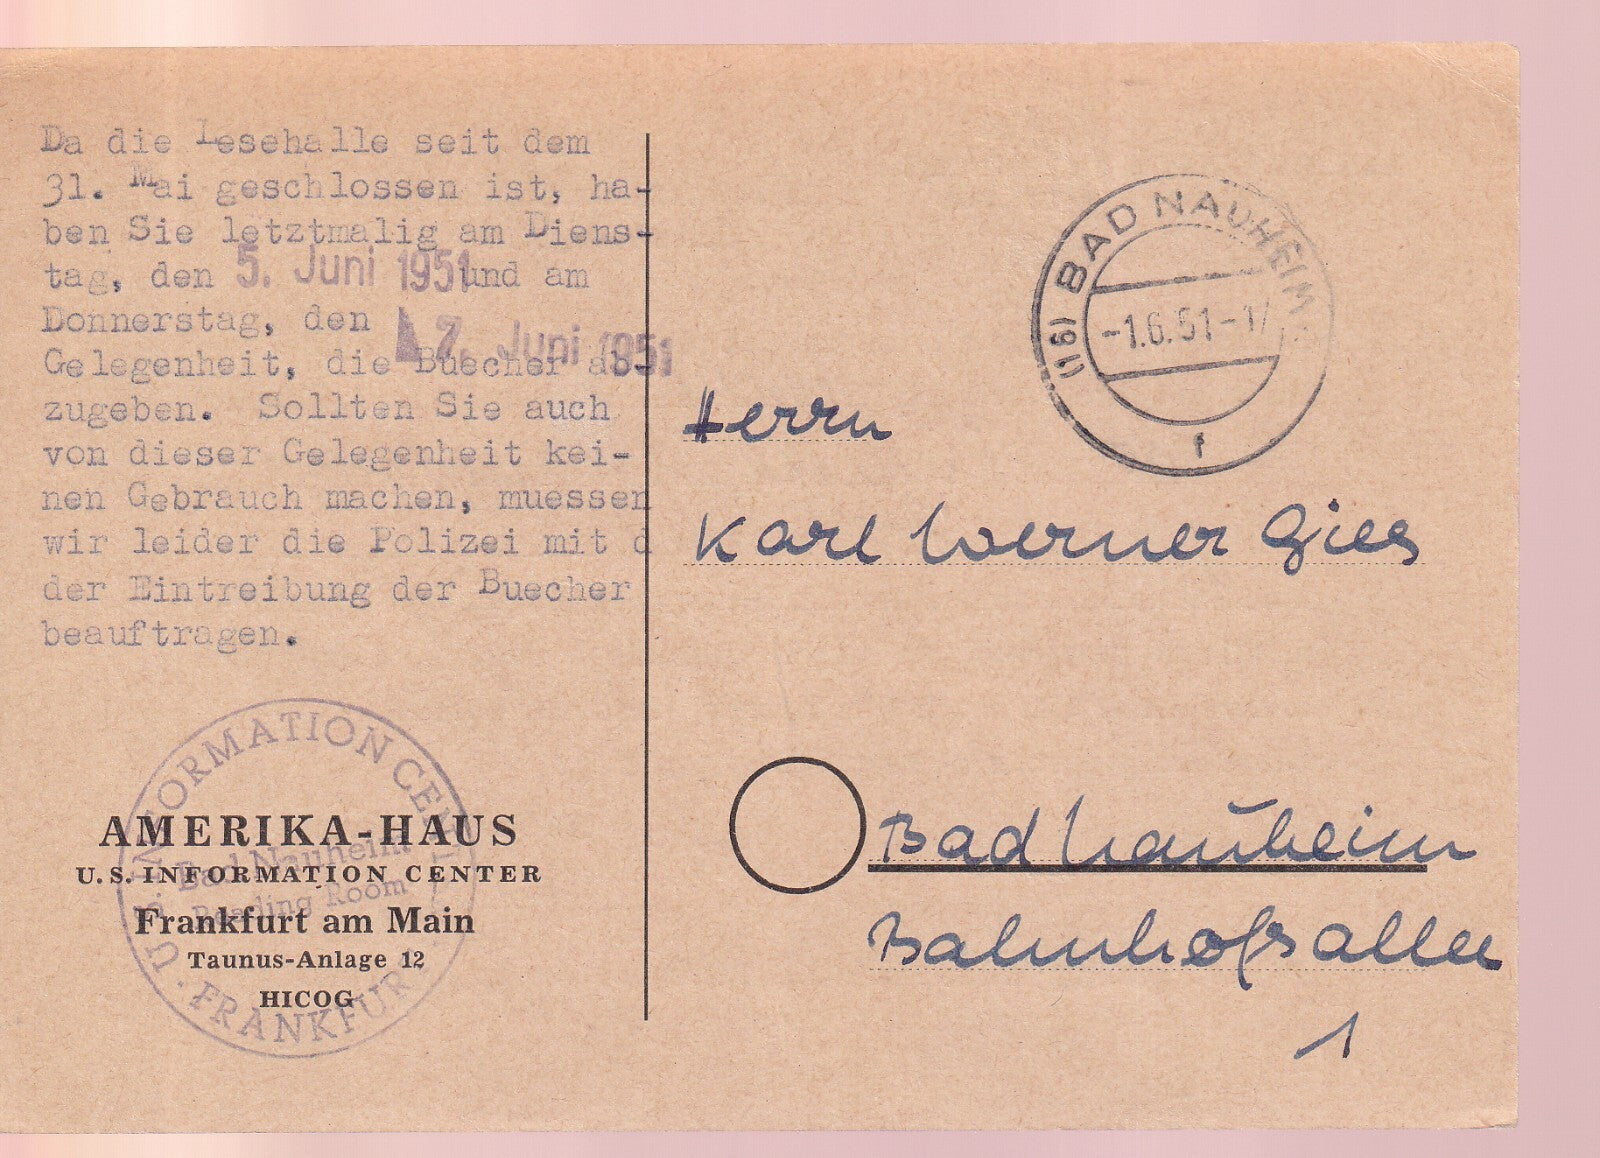 Da die Lesehalle seit dem
31. Mai geschlossen ist, ha-
ben Sie letztmalig am Diens-
tag, den 5. Juni 1951 und am
Donnerstag, den 7. Juni 1951
Gelegenheit, die Buecher ab-
zugeben. Sollten Sie auch
von dieser Gelegenheit kei-
nen Gebrauch machen, muessen
wir leider die Polizei mit d
der Eintreibung der Buecher
beauftragen.
U.S. INFORMATION CENTER
Bad Nauheim
Reading Room
FRANKFURT
AMERIKA-HAUS
U.S. INFORMATION CENTER
Frankfurt am Main
Taunus-Anlage 12
HICOG
(16) BAD NAUHEIM
-1.6.51-17
f
Herrn
Karl Werner Gies
Bad Nauheim
Bahnhofsallee
1